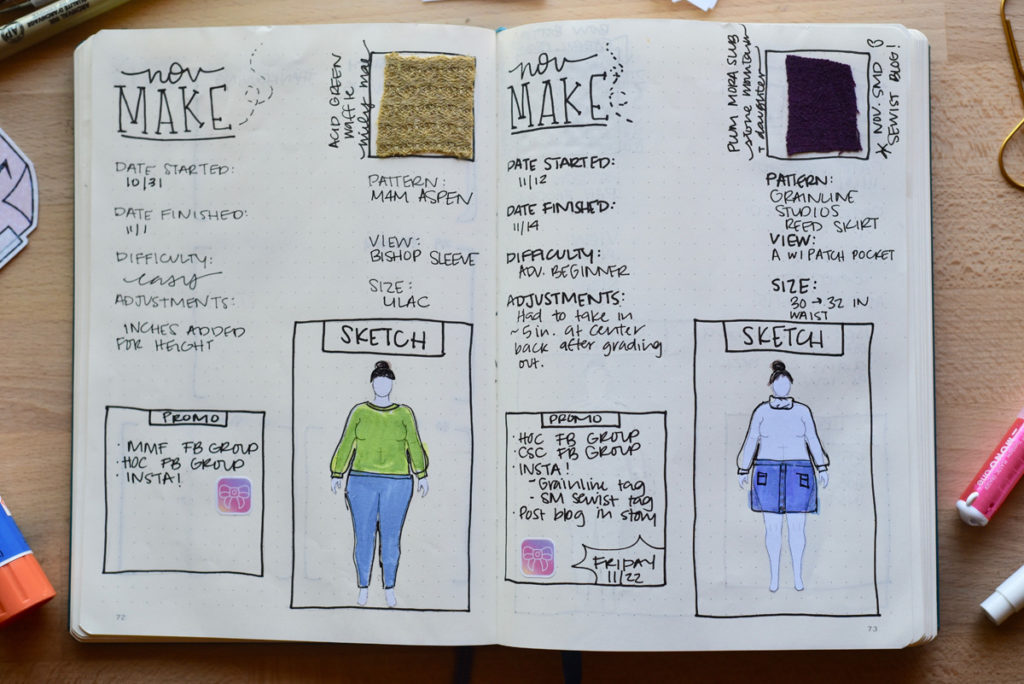 nov
MAKE
ACID GREEN
WAFFLE
mily mae
DATE STARTED:
10/31
DATE FINISHED:
11/1
DIFFICULTY:
easy
ADJUSTMENTS:
INCHES ADDED
FOR HEIGHT
PATTERN:
M4M ASPEN
VIEW:
BISHOP SLEEVE
SIZE:
LILAC
SKETCH
PROMO
· MMF FB GROUP
· HOC FB GROUP
· INSTA!
72
nov
MAKE
PLUM MORA SLUB
stone mountain
+ daughter
* NOV. SMD
SEWIST BLOG!
DATE STARTED:
11/12
DATE FINISHED:
11/14
DIFFICULTY:
ADV. BEGINNER
ADJUSTMENTS:
Had to take in
~5in. at center
back after grading
out.
PATTERN:
GRAINLINE
STUDIOS
REED SKIRT
VIEW:
A W/ PATCH POCKET
SIZE:
30 → 32 IN
WAIST
SKETCH
PROMO
· HOC FB GROUP
· CSC FB GROUP
· INSTA!
~Grainline tag
- SM sewist tag
· Post blog in story
FRIDAY
11/22
73
MONO